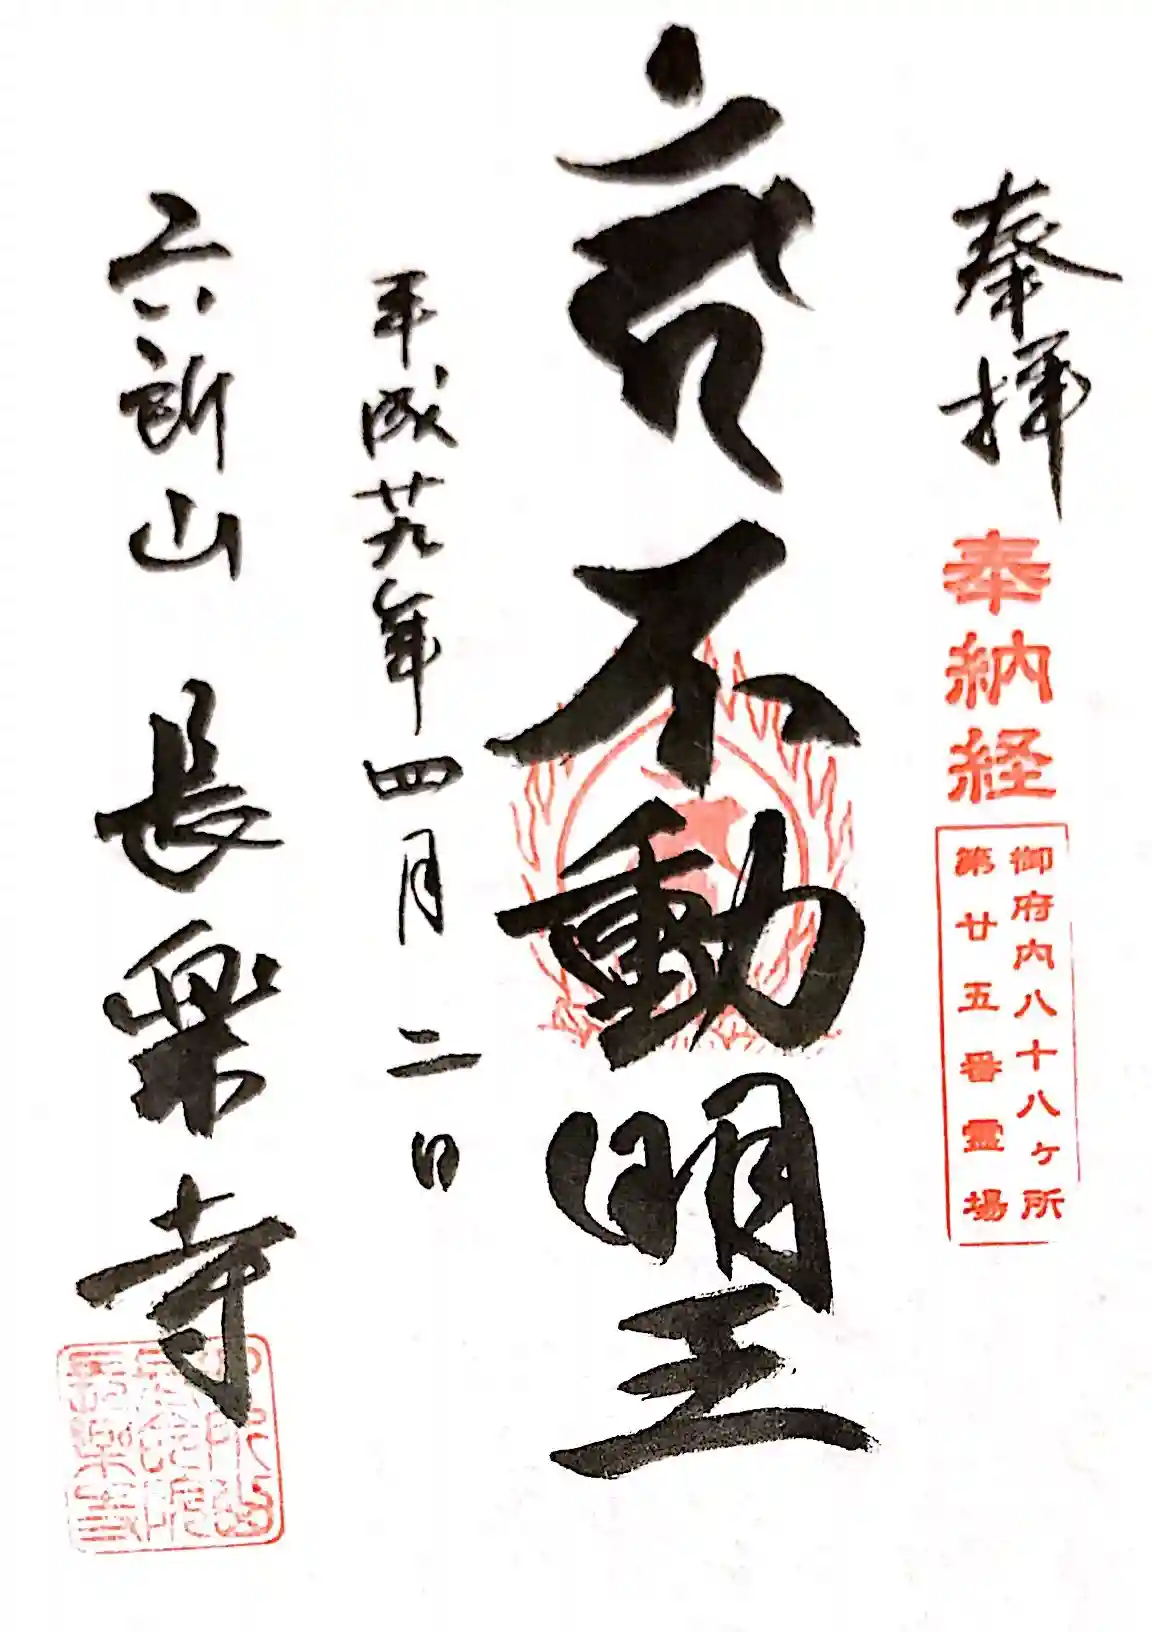 奉拝
奉納経
御府内八十八ヶ所
第廿五番霊場
不動明王
平成廿九年四月二日
六所山 長樂寺